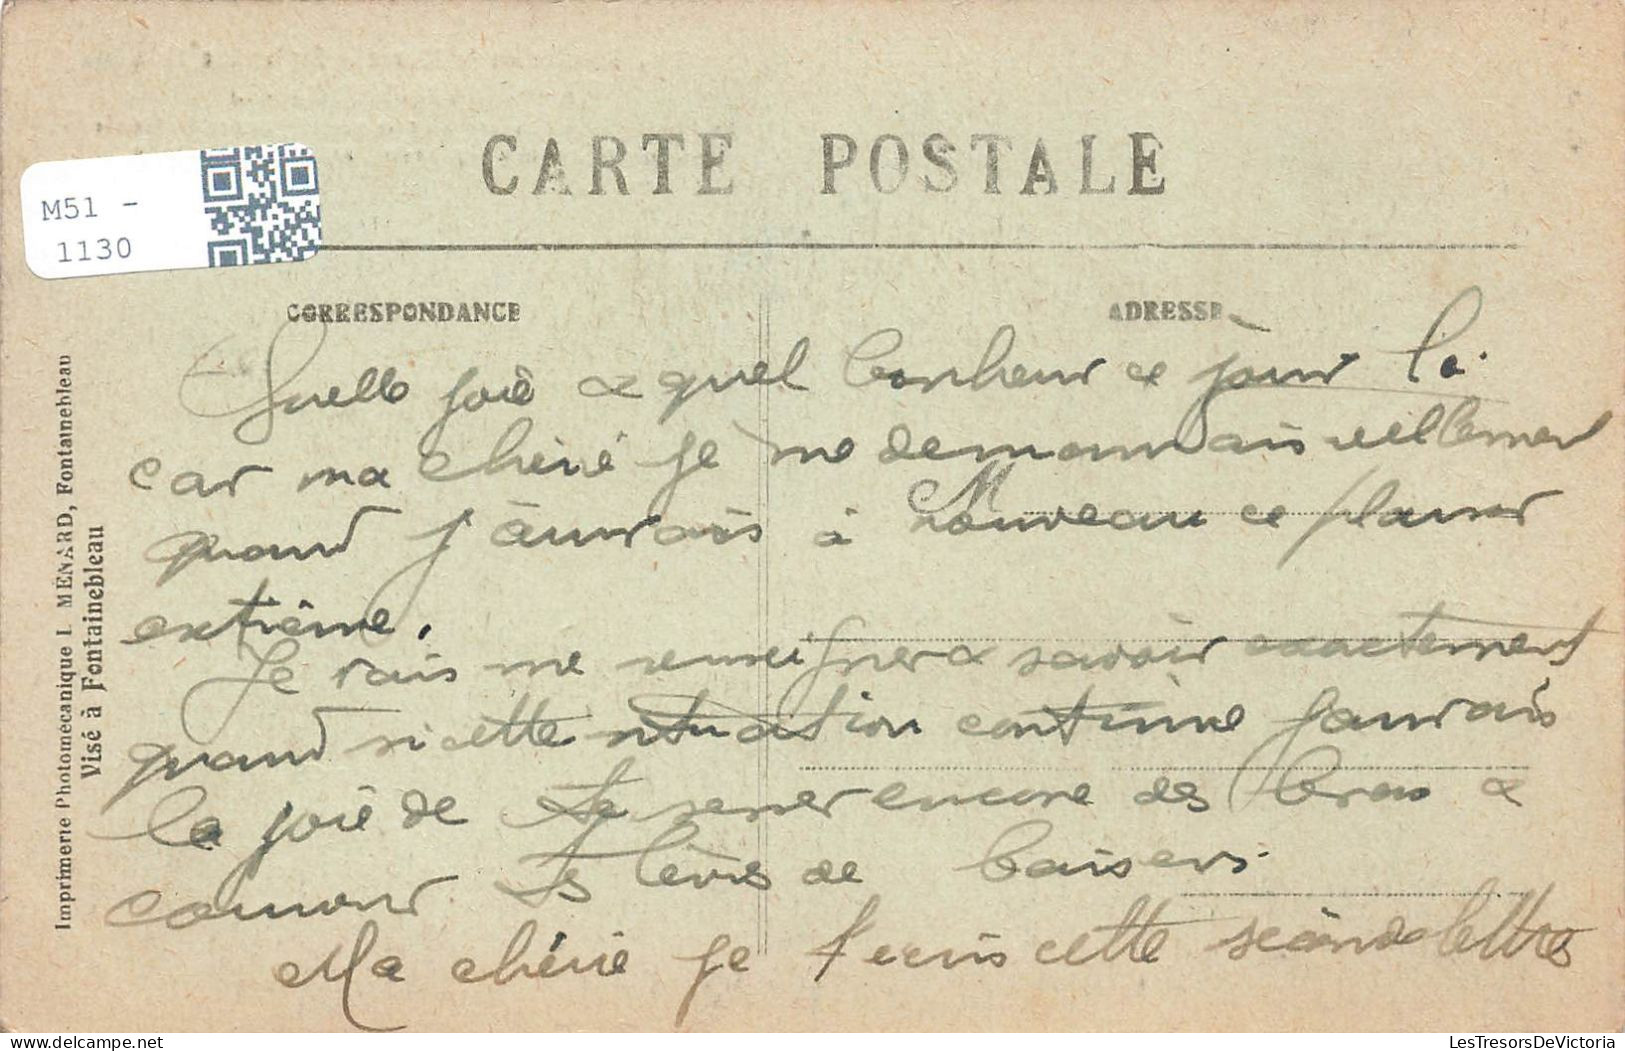 CARTE POSTALE
M51 -
1130
CORRESPONDANCE
ADRESSE
Imprimerie Photomécanique L. MÉNARD, Fontainebleau
Visé à Fontainebleau
Quelle joie & quel bonheur ce jour là
car ma chérie je me demandais réellement
quand j'aurais à nouveau ce plaisir
extrême.
Je vais me renseigner & savoir exactement
quand si cette situation continue j'aurais
la joie de te serrer encore des bras &
couvrir tes lèvres de baisers.
Ma chérie je t'ecris cette seconde lettre
LesTresorsDeVictoria